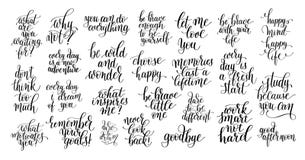 what
are you
waiting
for?
why
not?
you can do
everything
be brave
enough to
be
yourself
let me
love
you
be brave
with your
life
happy
mind
happy
life
every day
is a new
adventure
be wild
and
wonder
choose
happy
memories
last a
lifetime
every
day is
a fresh
start
don't
think too
much
every day
I dream
of you
what
inspires
me?
be a
brave
one
study,
because
you can
what
makes
you?
remember
your
goals!
never
look
back!
dare
to be
different
goodbye
work
smart
not
hard
good
afternoon